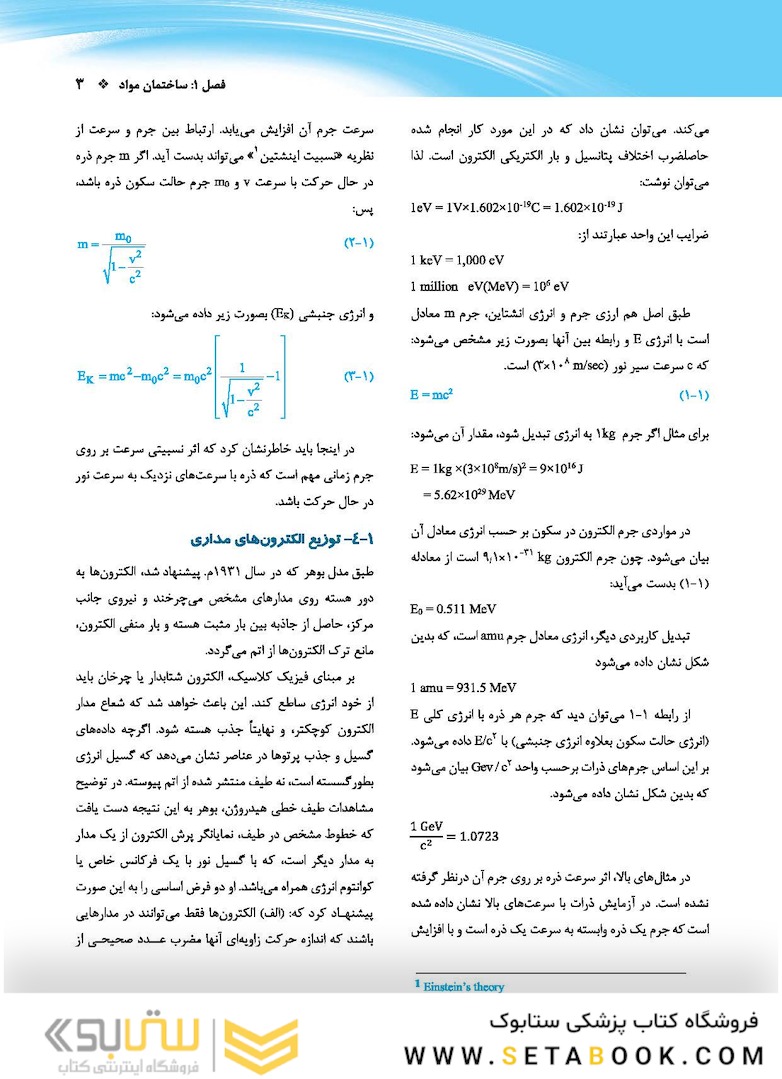 فصل ۱: ساختمان مواد ❖ ۳
می‌کند. می‌توان نشان داد که در این مورد کار انجام شده
حاصلضرب اختلاف پتانسیل و بار الکتریکی الکترون است. لذا
می‌توان نوشت:
1eV = 1V×1.602×10⁻¹⁹C = 1.602×10⁻¹⁹ J
ضرایب این واحد عبارتند از:
1 keV = 1,000 eV
1 million eV(MeV) = 10⁶ eV
طبق اصل هم ارزی جرم و انرژی انشتاین، جرم m معادل
است با انرژی E و رابطه بین آنها بصورت زیر مشخص می‌شود:
که c سرعت سیر نور (۳×۱۰⁸ m/sec) است.
E = mc² (۱-۱)
برای مثال اگر جرم ۱kg به انرژی تبدیل شود، مقدار آن می‌شود:
E = 1kg ×(3×10⁸m/s)² = 9×10¹⁶ J
= 5.62×10²⁹ MeV
در مواردی جرم الکترون در سکون بر حسب انرژی معادل آن
بیان می‌شود. چون جرم الکترون ۹٫۱×۱۰⁻³¹ kg است از معادله
(۱-۱) بدست می‌آید:
E₀ = 0.511 MeV
تبدیل کاربردی دیگر، انرژی معادل جرم amu است، که بدین
شکل نشان داده می‌شود
1 amu = 931.5 MeV
از رابطه ۱-۱ می‌توان دید که جرم هر ذره با انرژی کلی E
(انرژی حالت سکون بعلاوه انرژی جنبشی) با E/c² داده می‌شود.
بر این اساس جرم‌های ذرات برحسب واحد Gev / c² بیان می‌شود
که بدین شکل نشان داده می‌شود.
1 GeV / c² = 1.0723
در مثال‌های بالا، اثر سرعت ذره بر روی جرم آن درنظر گرفته
نشده است. در آزمایش ذرات با سرعت‌های بالا نشان داده شده
است که جرم یک ذره وابسته به سرعت یک ذره است و با افزایش
1 Einstein's theory
سرعت جرم آن افزایش می‌یابد. ارتباط بین جرم و سرعت از
نظریه «نسبیت اینشتین¹» می‌تواند بدست آید. اگر m جرم ذره
در حال حرکت با سرعت v و m₀ جرم حالت سکون ذره باشد،
پس:
m = m₀ / √(1 − v²/c²) (۲-۱)
و انرژی جنبشی (Eᴋ) بصورت زیر داده می‌شود:
Eᴋ = mc² − m₀c² = m₀c² [1 / √(1 − v²/c²) − 1] (۳-۱)
در اینجا باید خاطرنشان کرد که اثر نسبیتی سرعت بر روی
جرم زمانی مهم است که ذره با سرعت‌های نزدیک به سرعت نور
در حال حرکت باشد.
۱-۴- توزیع الکترون‌های مداری
طبق مدل بوهر که در سال ۱۹۳۱م. پیشنهاد شد، الکترون‌ها به
دور هسته روی مدارهای مشخص می‌چرخند و نیروی جانب
مرکز، حاصل از جاذبه بین بار مثبت هسته و بار منفی الکترون،
مانع ترک الکترون‌ها از اتم می‌گردد.
بر مبنای فیزیک کلاسیک، الکترون شتابدار یا چرخان باید
از خود انرژی ساطع کند. این باعث خواهد شد که شعاع مدار
الکترون کوچکتر، و نهایتاً جذب هسته شود. اگرچه داده‌های
گسیل و جذب پرتوها در عناصر نشان می‌دهد که گسیل انرژی
بطورگسسته است، نه طیف منتشر شده از اتم پیوسته. در توضیح
مشاهدات طیف خطی هیدروژن، بوهر به این نتیجه دست یافت
که خطوط مشخص در طیف، نمایانگر پرش الکترون از یک مدار
به مدار دیگر است، که با گسیل نور با یک فرکانس خاص یا
کوانتوم انرژی همراه می‌باشد. او دو فرض اساسی را به این صورت
پیشنهـاد کرد که: (الف) الکترون‌ها فقط می‌توانند در مدارهایی
باشند که اندازه حرکت زاویه‌ای آنها مضرب عـــدد صحیحـی از
فروشگاه کتاب پزشکی ستابوک
WWW.SETABOOK.COM
ستابوک
فروشگاه اینترنتی کتاب